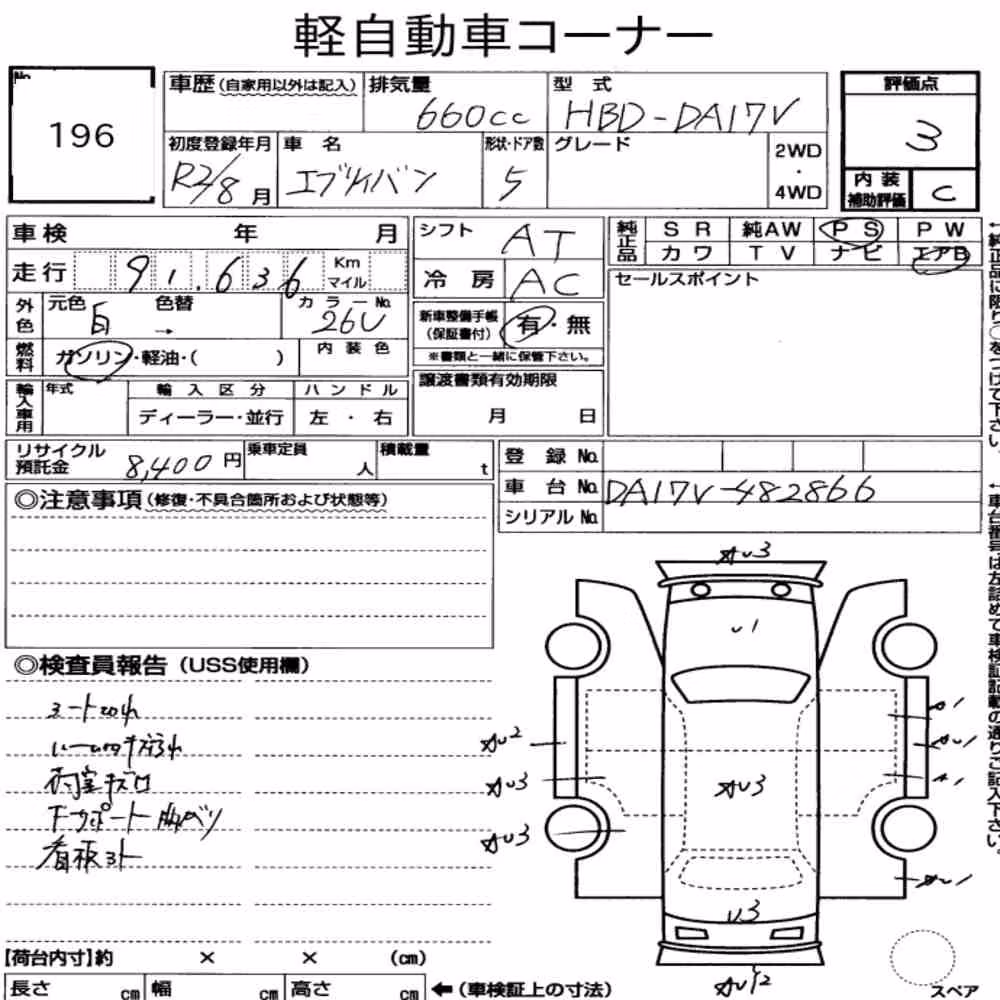 軽自動車コーナー
No.
196
車歴(自家用以外は記入)
排気量
660cc
型 式
HBD-DA17V
評価点
3
初度登録年月
R2/8月
車 名
エブリィバン
形状・ドア数
5
グレード
2WD
・
4WD
内装
補助評価
C
車検 年 月
シフト
AT
純正品
SR 純AW PS PW
カワ TV ナビ エアB
走行 91.636
Km
マイル
冷 房
AC
セールスポイント
外色
元色
白
色替
→
カラーNo.
26U
新車整備手帳
(保証書付)
有・無
※書類と一緒に保管下さい。
燃料
ガソリン・軽油・( )
内装色
輸入車用
年式
輸入区分
ハンドル
ディーラー・並行
左 ・ 右
譲渡書類有効期限
月 日
リサイクル
預託金
8,400円
乗車定員
人
積載量
t
登 録 No.
車 台 No.
DA17V-482866
シリアルNo.
◎注意事項(修復・不具合箇所および状態等)
◎検査員報告(USS使用欄)
荷室キズロ
看板ヨト
【荷台内寸】約 × × (cm)
長さ cm 幅 cm 高さ cm
←(車検証上の寸法)
スペア
U1
U3
←純正品に限り○をつけて下さい。
←車台番号は左詰めで車検証記載の通りご記入下さい。